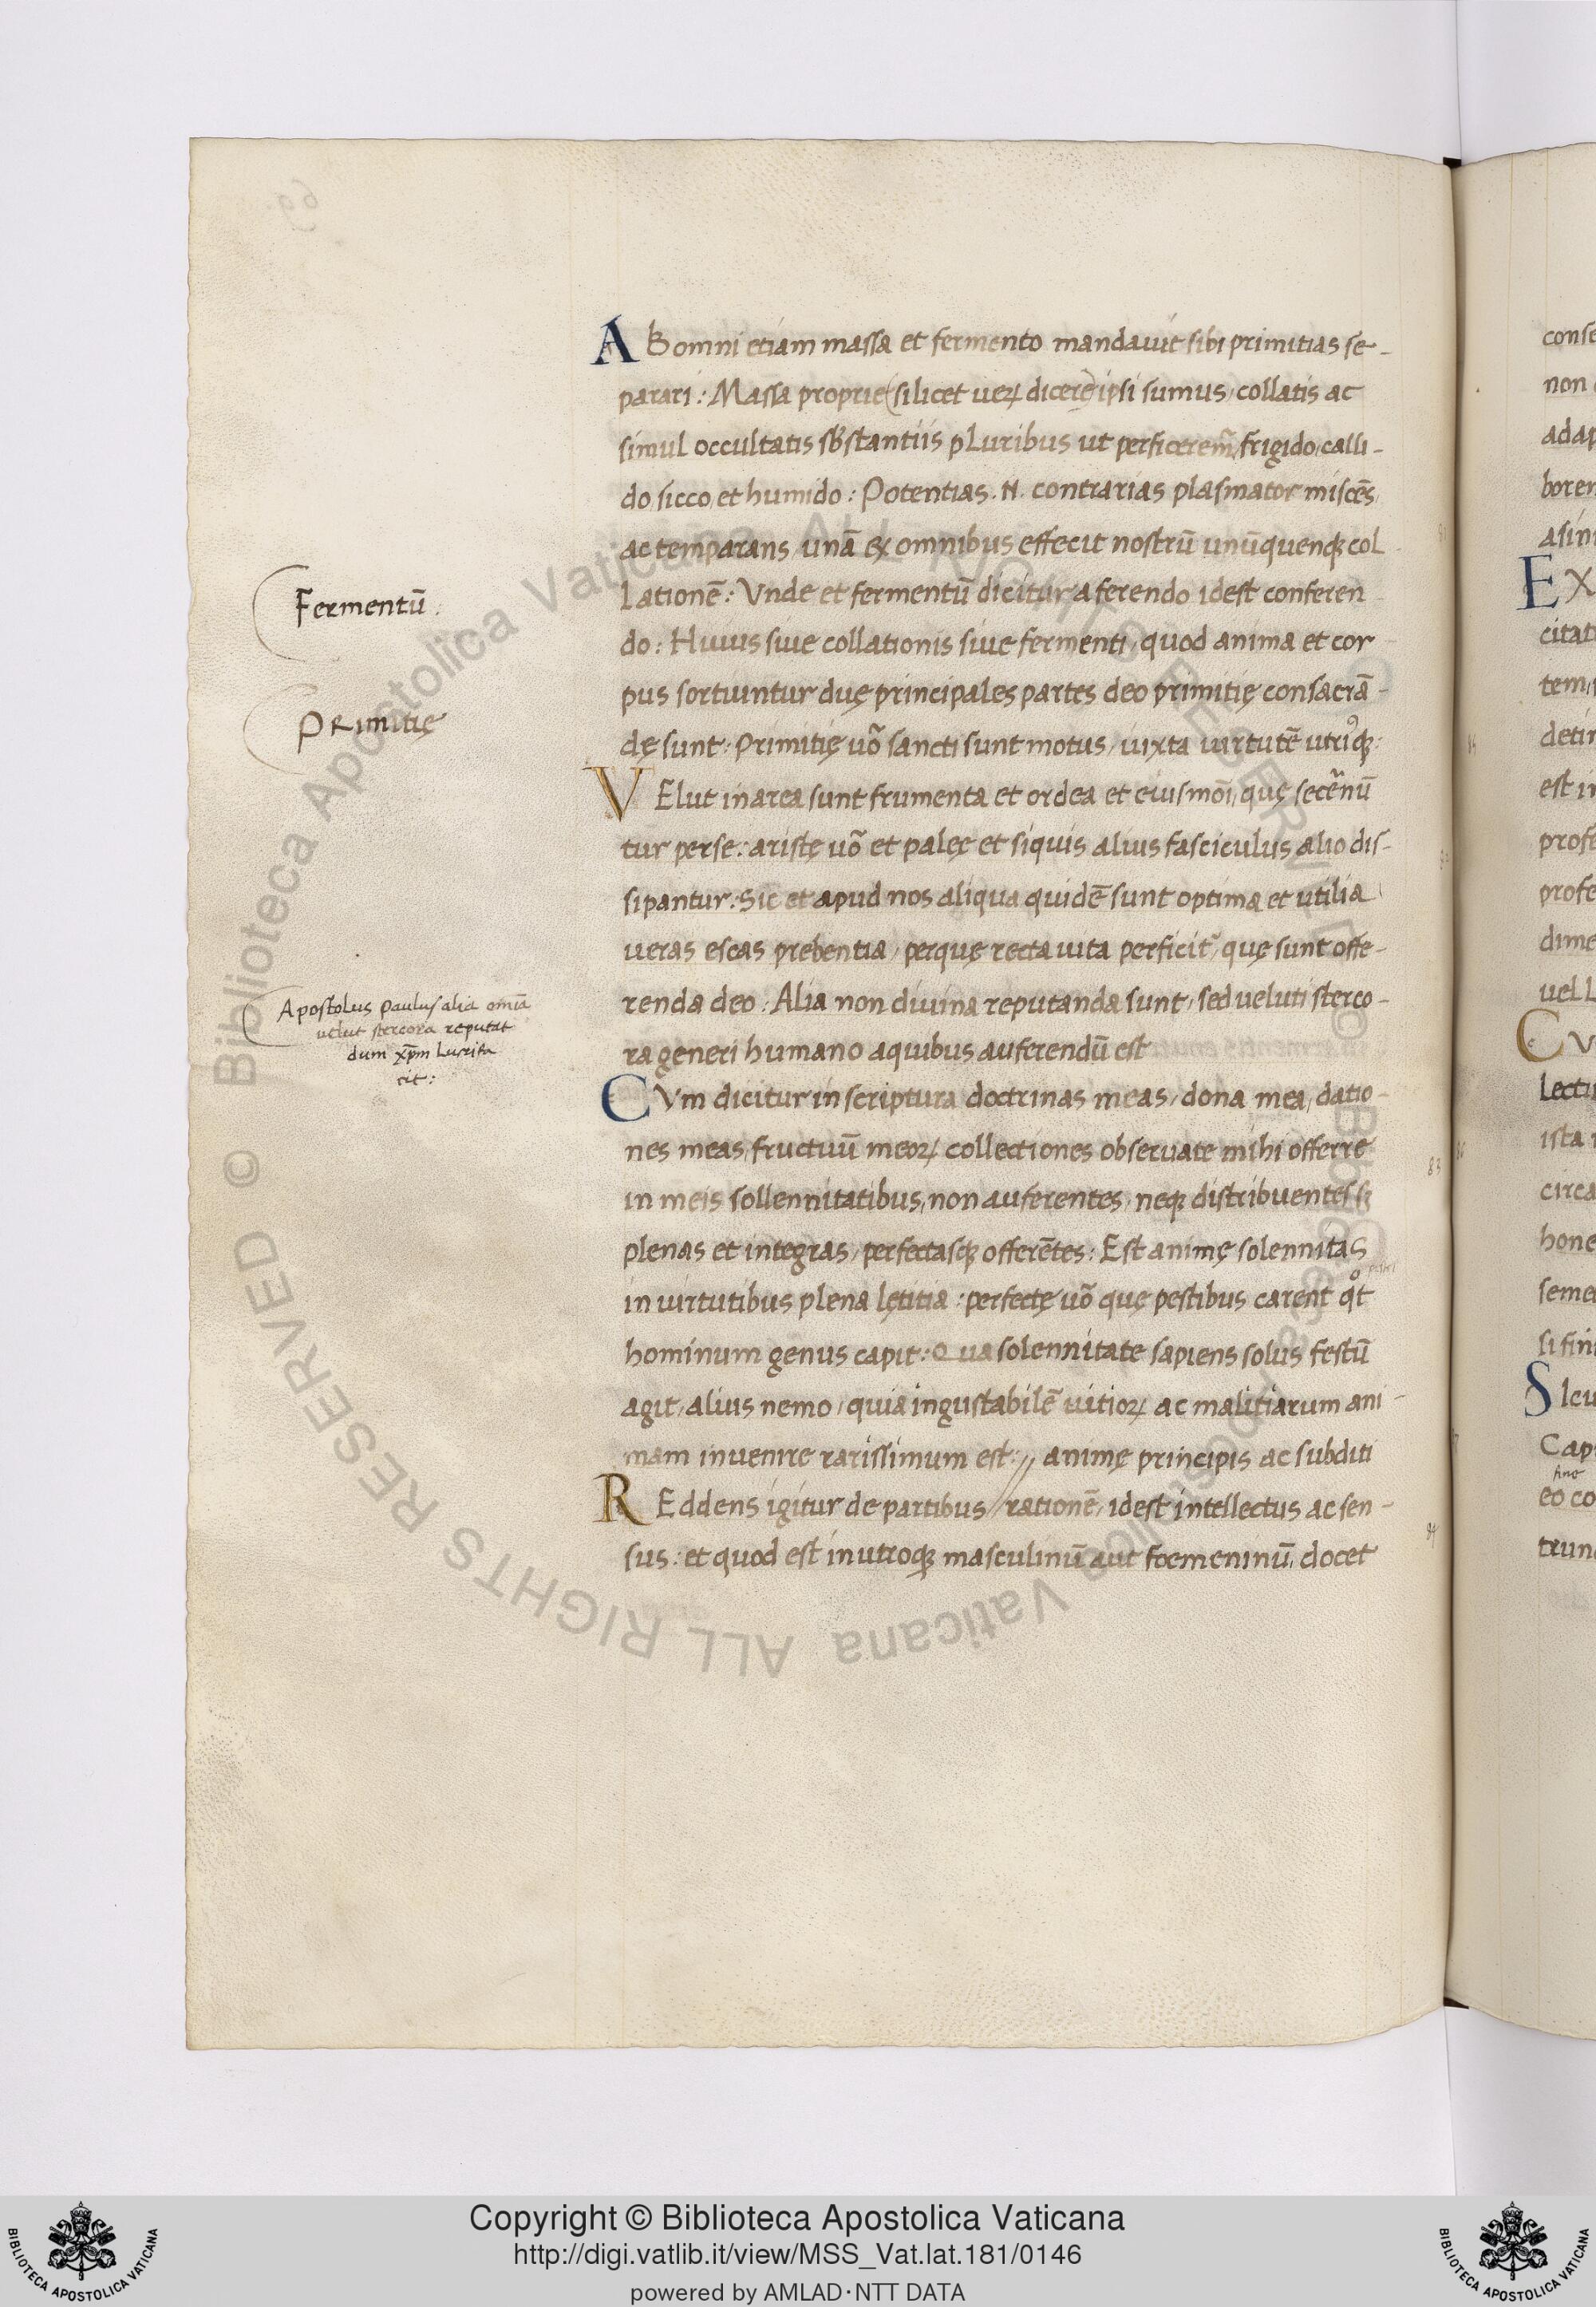 AB omni etiam massa et fermento mandauit sibi primitias se-
parari: Massa proprie (silicet ueꝝ dicere) ipsi sumus, collatis ac
simul occultatis sb̄stantiis pluribus ut perficerem̃, frigido, calli-
do, sicco, et humido: Potentias .N. contrarias plasmator miscēs,
ac temparans unā ex omnibus effecit nostrū unūquenqȝ col
lationē: Vnde et fermentū dicitur a ferendo idest conferen
do: Huius siue collationis siue fermenti, quod anima et cor
pus sortuintur duę principales partes deo primitię consacrā-
dę sunt: Primitię uõ sancti sunt motus, iuxta uirtutē utriꝰqȝ:
VElut in area sunt frumenta et ordea et eiusmoi, quę secer̃nū
tur per se: aristę uõ et palęę et siquis alius fasciculus alio dis-
sipantur: Sic et apud nos aliqua quidē sunt optima et utilia
ueras escas prebentia, per quę recta uita perficit᷑, quę sunt offe-
renda deo: Alia non diuina reputanda sunt, sed ueluti sterco-
ra generi humano a quibus auferendū est
CVm dicitur in scriptura doctrinas meas, dona mea, datio-
nes meas, fructuū meoꝝ collectiones obseruate mihi offerre
in meis sollennitatibus, non auferentes, neqȝ distribuentes
plenas et integras, perfectasqȝ offerētes: Est animę solennitas
in uirtutibus plena lętitia: perfectę uõ quę pestibus carent qͦt
hominum genus capit: Qua solennitate sapiens solus festū
agit, alius nemo, quia ingustabilē uitioꝝ ac malitiarum ani-
mam inuenire rarissimum est: // animę principis ac subditi
REddens igitur de partibus // rationē, idest intellectus ac sen-
sus: et quod est in utroqȝ masculinū aut foemeninū, docet
Fermentū:
Primitię
Apostolus Paulus alia omīa
uelut stercora reputat
dum xp̄m lucrifa
cit:
conse
non
adap
borer
asin
EX
citat
tem,
detin
est in
profe
profe
dime
uel l
CV
lectu
ista
circa
hone
seme
si fin
SIcu
Cap
fine
eo co
trun
Copyright © Biblioteca Apostolica Vaticana
http://digi.vatlib.it/view/MSS_Vat.lat.181/0146
powered by AMLAD·NTT DATA
BIBLIOTECA APOSTOLICA VATICANA
BIBLIOTECA APOSTOLICA VATICANA
© Biblioteca Apostolica Vaticana ALL RIGHTS RESERVED
© Biblioteca Apostolica Vaticana ALL RIGHTS RESERVED